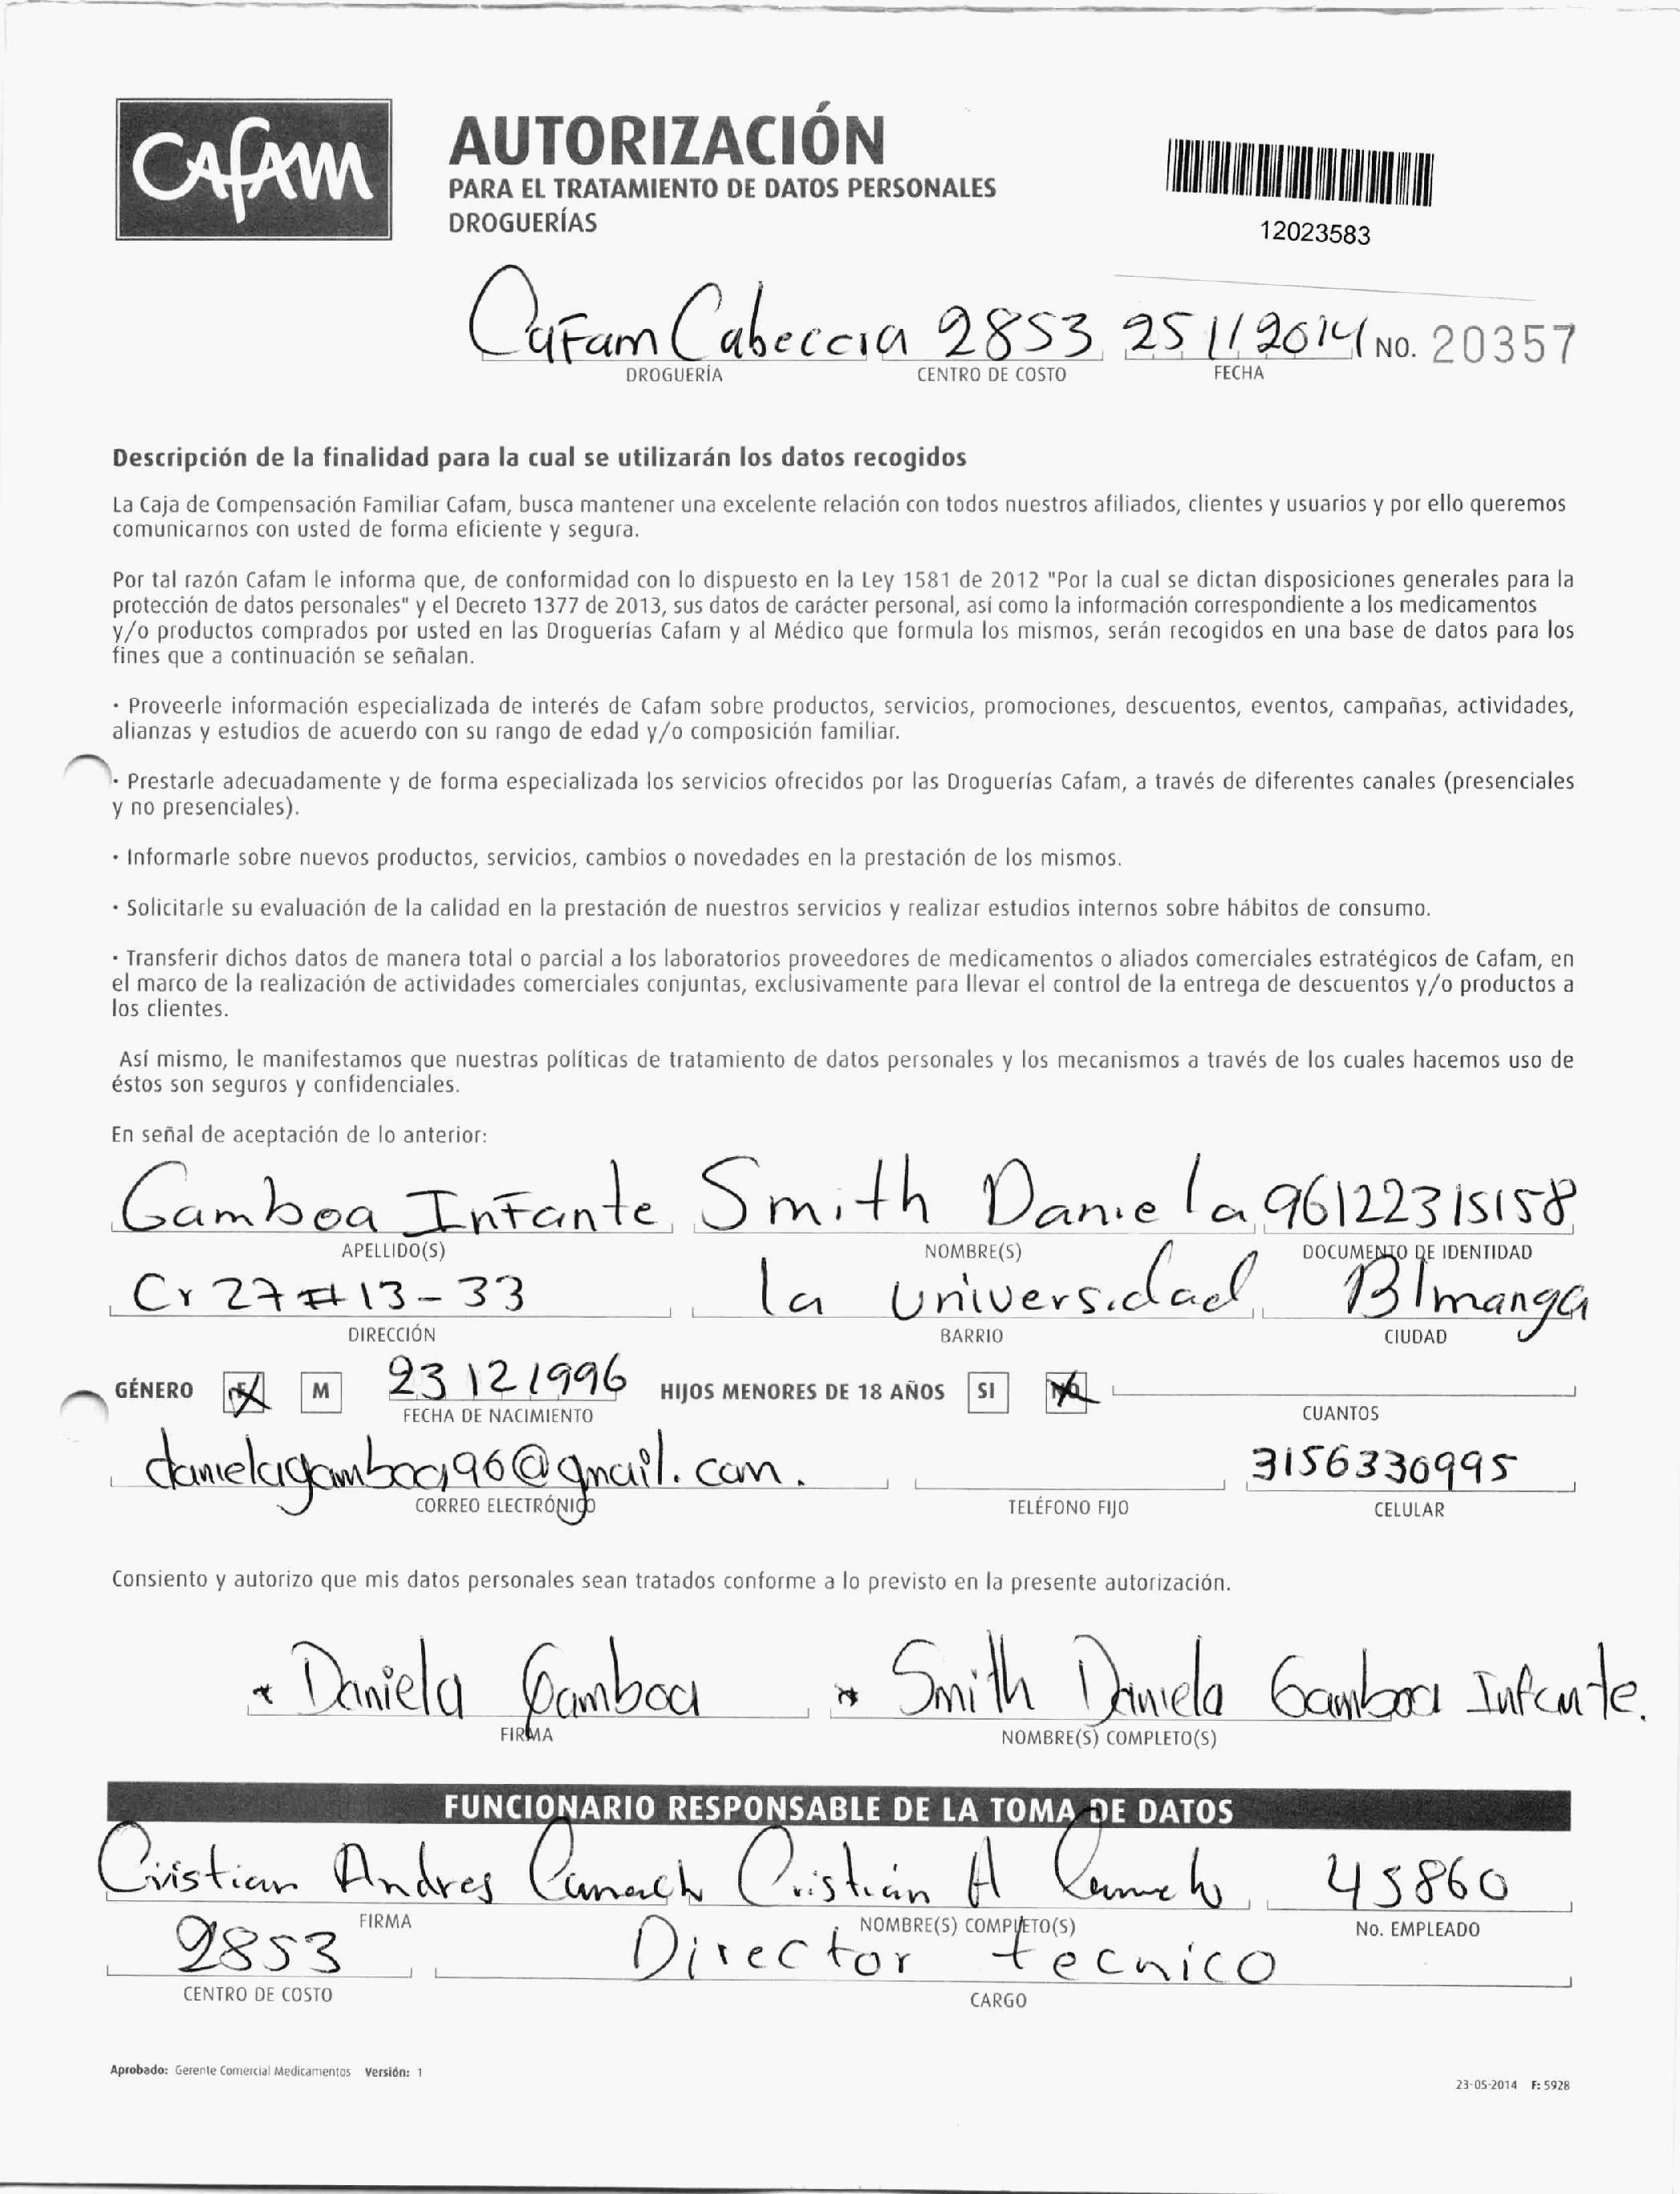 CAFAM
AUTORIZACIÓN
PARA EL TRATAMIENTO DE DATOS PERSONALES
DROGUERÍAS
12023583
Cafam Cabeccia 2853 25 11 2014 NO. 20357
DROGUERÍA CENTRO DE COSTO FECHA
Descripción de la finalidad para la cual se utilizarán los datos recogidos
La Caja de Compensación Familiar Cafam, busca mantener una excelente relación con todos nuestros afiliados, clientes y usuarios y por ello queremos
comunicarnos con usted de forma eficiente y segura.
Por tal razón Cafam le informa que, de conformidad con lo dispuesto en la Ley 1581 de 2012 "Por la cual se dictan disposiciones generales para la
protección de datos personales" y el Decreto 1377 de 2013, sus datos de carácter personal, así como la información correspondiente a los medicamentos
y/o productos comprados por usted en las Droguerías Cafam y al Médico que formula los mismos, serán recogidos en una base de datos para los
fines que a continuación se señalan.
· Proveerle información especializada de interés de Cafam sobre productos, servicios, promociones, descuentos, eventos, campañas, actividades,
alianzas y estudios de acuerdo con su rango de edad y/o composición familiar.
· Prestarle adecuadamente y de forma especializada los servicios ofrecidos por las Droguerías Cafam, a través de diferentes canales (presenciales
y no presenciales).
· Informarle sobre nuevos productos, servicios, cambios o novedades en la prestación de los mismos.
· Solicitarle su evaluación de la calidad en la prestación de nuestros servicios y realizar estudios internos sobre hábitos de consumo.
· Transferir dichos datos de manera total o parcial a los laboratorios proveedores de medicamentos o aliados comerciales estratégicos de Cafam, en
el marco de la realización de actividades comerciales conjuntas, exclusivamente para llevar el control de la entrega de descuentos y/o productos a
los clientes.
Así mismo, le manifestamos que nuestras políticas de tratamiento de datos personales y los mecanismos a través de los cuales hacemos uso de
éstos son seguros y confidenciales.
En señal de aceptación de lo anterior:
Gamboa Infante Smith Daniela 96122315158
APELLIDO(S) NOMBRE(S) DOCUMENTO DE IDENTIDAD
Cr 27 # 13 - 33 la universidad B/manga
DIRECCIÓN BARRIO CIUDAD
GÉNERO F M 23 12 1996 HIJOS MENORES DE 18 AÑOS SI NO
FECHA DE NACIMIENTO CUANTOS
danielagamboa96@gmail.com. 3156330995
CORREO ELECTRÓNICO TELÉFONO FIJO CELULAR
Consiento y autorizo que mis datos personales sean tratados conforme a lo previsto en la presente autorización.
* Daniela Gamboa * Smith Daniela Gamboa Infante.
FIRMA NOMBRE(S) COMPLETO(S)
FUNCIONARIO RESPONSABLE DE LA TOMA DE DATOS
Cristian Andres Camacho Cristian A Camacho 45860
FIRMA NOMBRE(S) COMPLETO(S) No. EMPLEADO
2853 Director tecnico
CENTRO DE COSTO CARGO
Aprobado: Gerente Comercial Medicamentos Versión: 1
23-05-2014 F: 5928